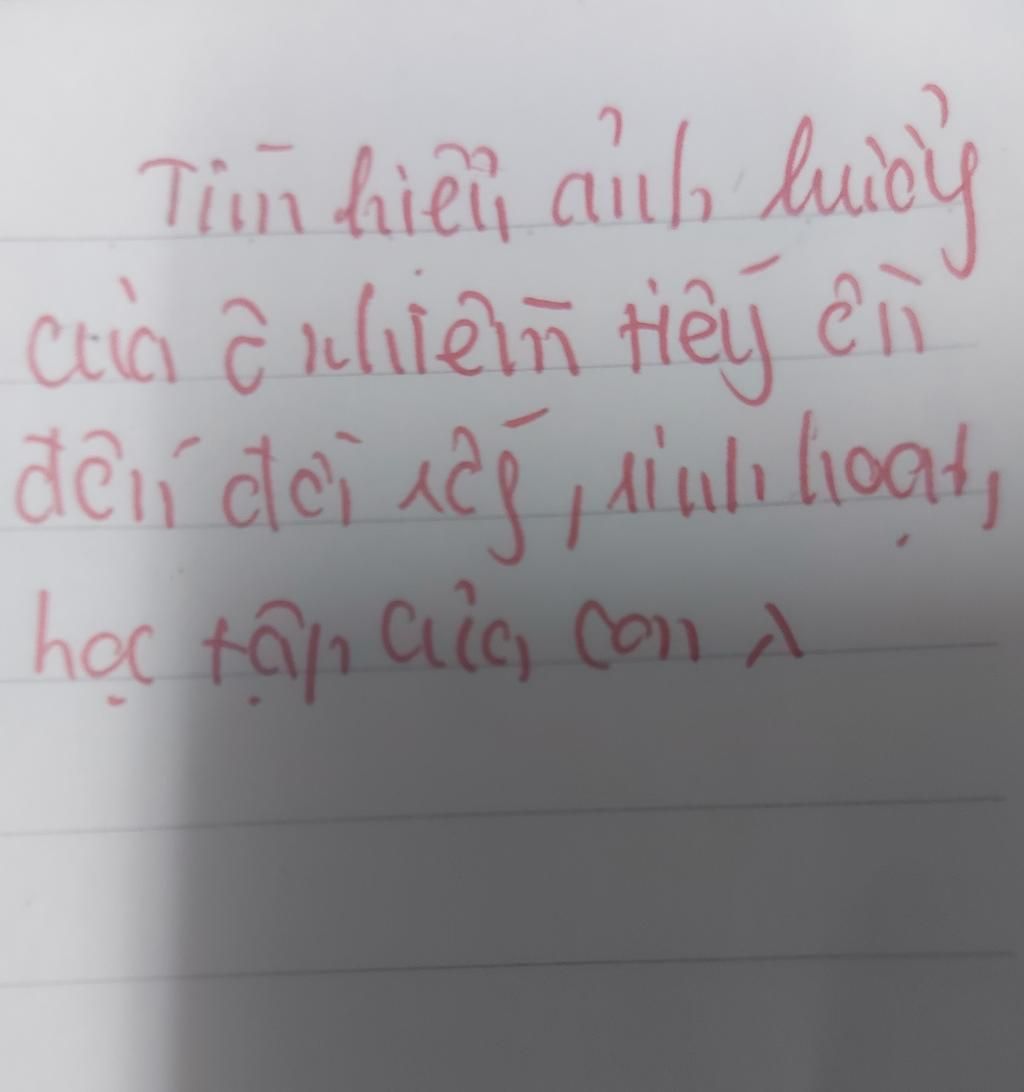 Tìm hiểu ảnh hưởng
của ô nhiễm tiếng ồn
đến đời sống, sinh hoạt,
học tập của con λ